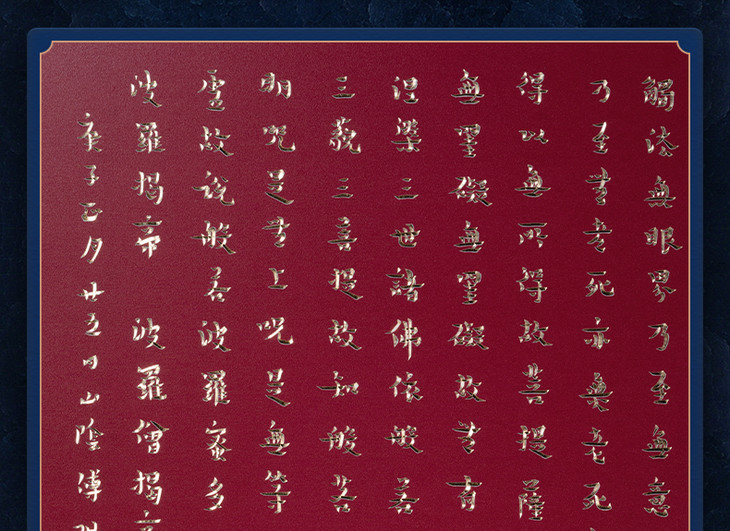 觸法無眼界乃至無意
乃至無老死亦無老死
得以無所得故菩提薩
無罣礙無罣礙故無有
涅槃三世諸佛依般若
三藐三菩提故知般若
明咒是無上咒是無等
虛故說般若波羅蜜多
波羅揭帝 波羅僧揭帝
庚子正月廿五日山陰傅